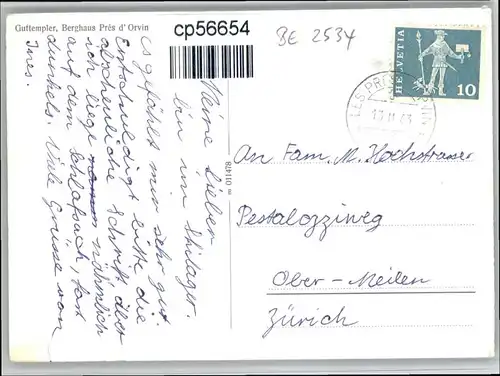 Guttempler, Berghaus Prés d'Orvin
cp56654
BE 2534
HELVETIA
10
LES PRÉS
Meine Lieben
bin im Skilager.
es gefählt mir sehr gut.
Entschuldigt bitte die
abscheuliche Schrift aber
ich liege nämlich
auf dem Schlafsack, fast
dunkels. Viele Grüsse von
Ines.
011478
An Fam. M. Hochstrasser
Pestalozziweg
Ober-Meilen
Zürich